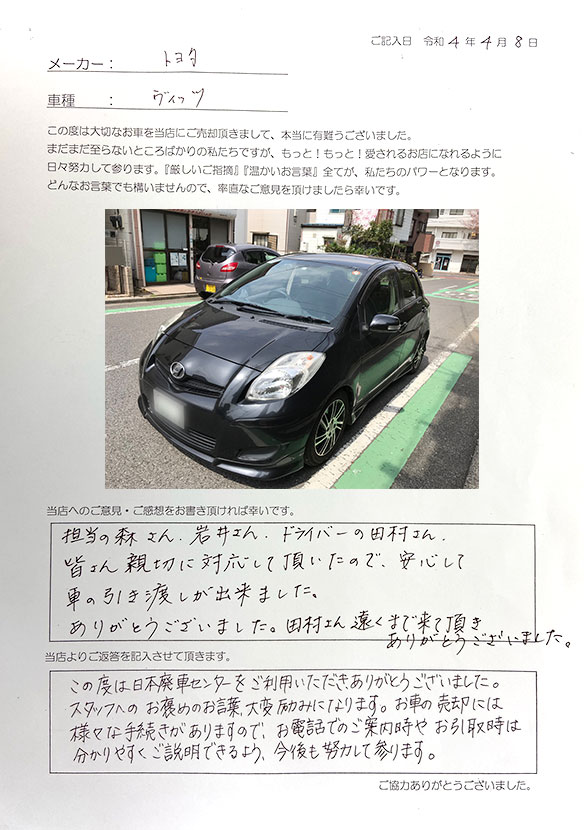 ご記入日 令和 4 年 4 月 8 日
メーカー： トヨタ
車種 ： ヴィッツ
この度は大切なお車を当店にご売却頂きまして、本当に有難うございました。
まだまだ至らないところばかりの私たちですが、もっと！もっと！愛されるお店になれるように
日々努力して参ります。『厳しいご指摘』『温かいお言葉』全てが、私たちのパワーとなります。
どんなお言葉でも構いませんので、率直なご意見を頂けましたら幸いです。
当店へのご意見・ご感想をお書き頂ければ幸いです。
担当の森さん、岩井さん、ドライバーの田村さん、
皆さん親切に対応して頂いたので、安心して
車の引き渡しが出来ました。
ありがとうございました。田村さん遠くまで来て頂き
ありがとうございました。
当店よりご返答を記入させて頂きます。
この度は日本廃車センターをご利用いただき、ありがとうございました。
スタッフへのお褒めのお言葉、大変励みになります。お車の売却には
様々な手続きがありますので、お電話でのご案内時やお引取時は
分かりやすくご説明できるよう、今後も努力して参ります。
ご協力ありがとうございました。